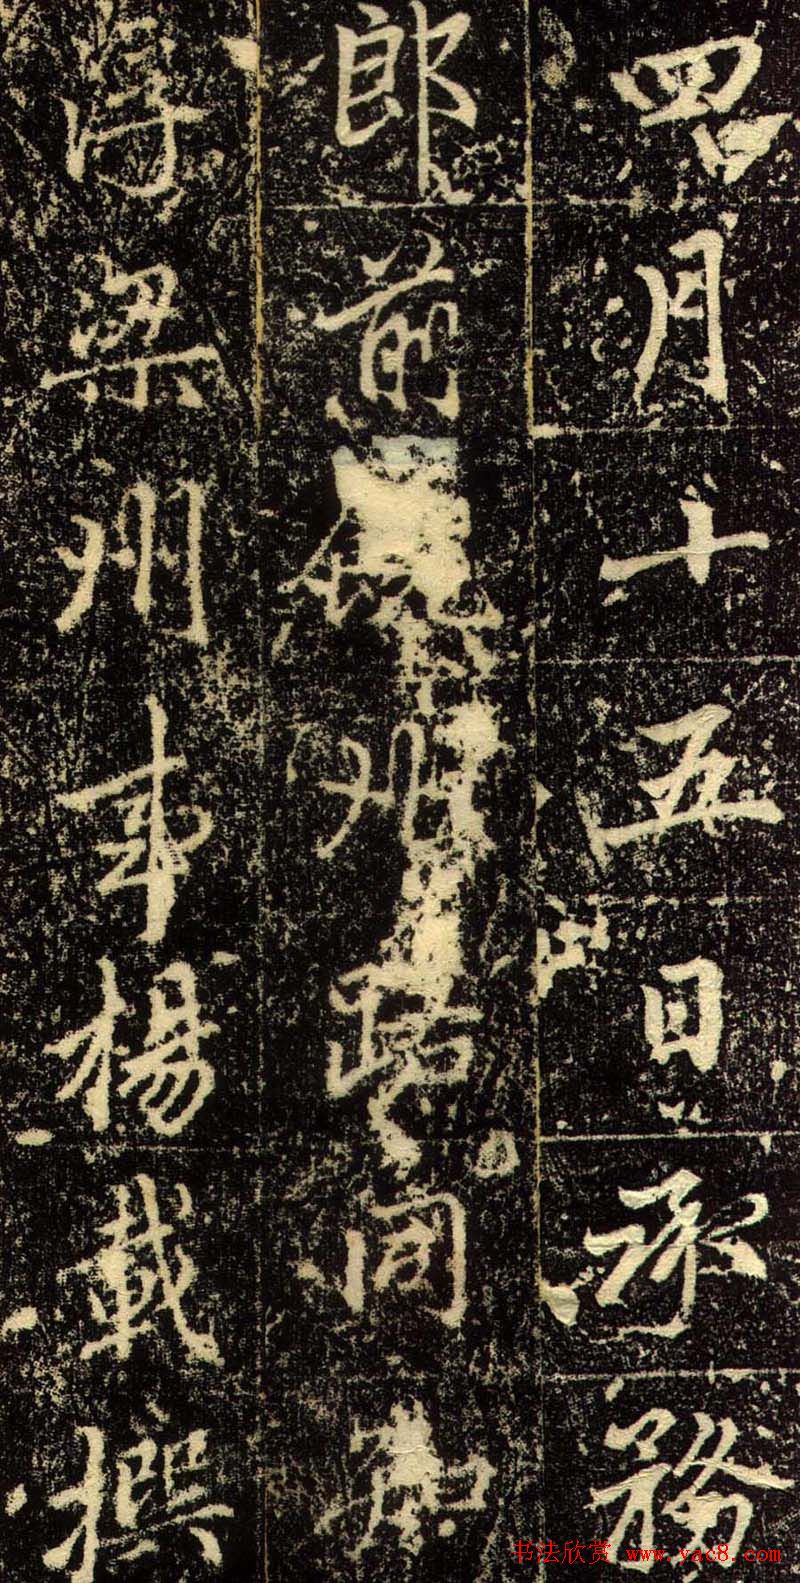 四月十五日承務
郎前州路同知
浮梁州事楊載撰
书法欣赏 www.yac8.com